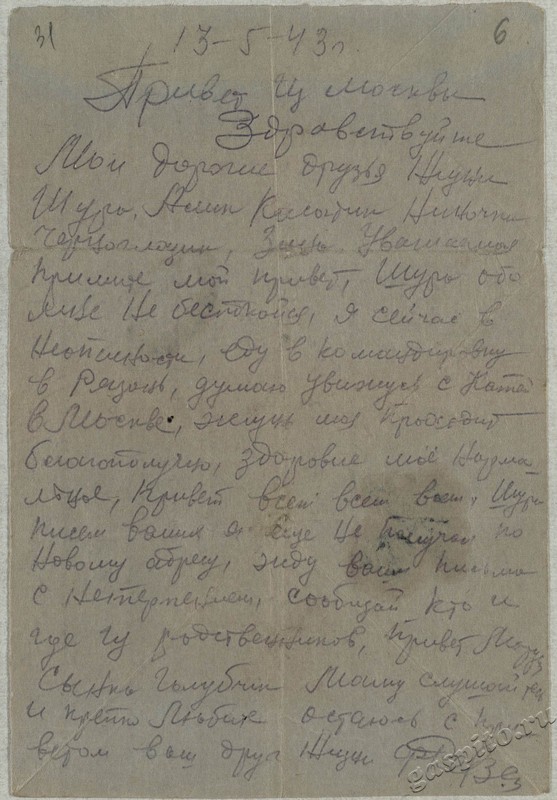 31 13-5-43 г. 6
Привет из Москвы
Здравствуйте
Мои дорогие друзья Жизни
Шура, Алик Ниночка
Зина Уважаемая
мой привет, Шура обо
мне не беспокойся, я сейчас в
еду в командировку
в Рязань, думаю увижусь с Катей
в Москве, жизнь моя проходит
благополучно, здоровие моё норма
льное, привет всем всем всем, Шура
писем ваших я еще не получал по
новому адресу, жду ваши письма
с нетерпением, сообщай кто и
где из родственников, привет
Сынка голубчик маму слушай
и крепко люби остаюсь с при
ветом ваш друг Жизни
gaspito.ru